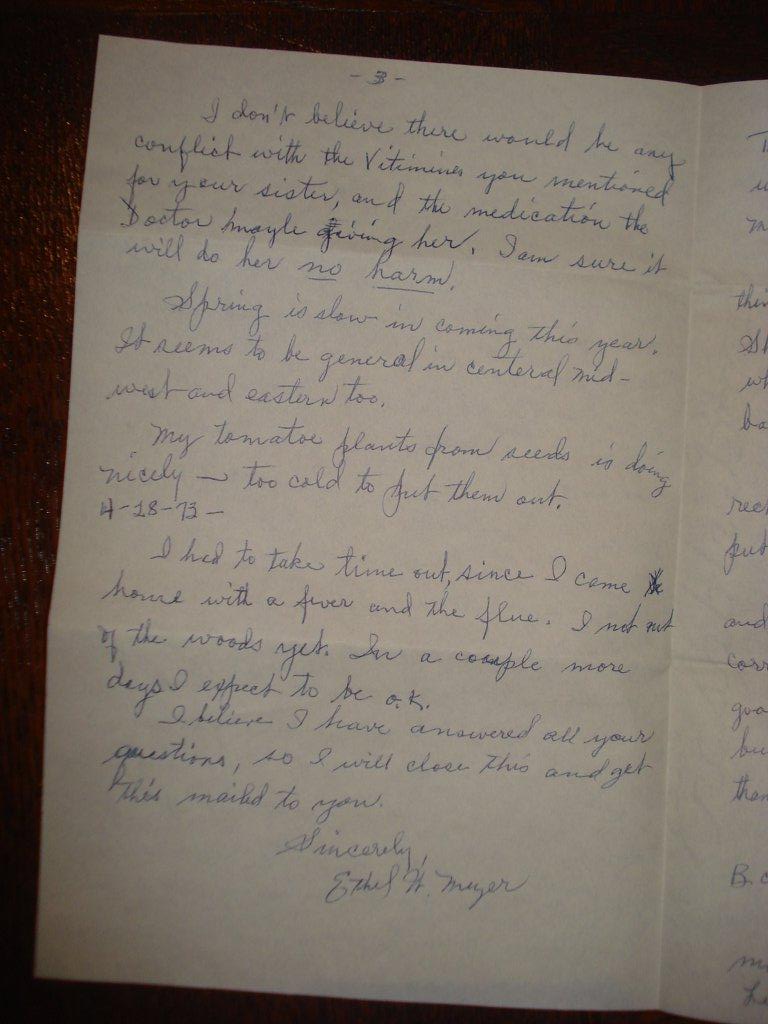 - 3 -
I don't believe there would be any
conflict with the Vitimines you mentioned
for your sister, and the medication the
Doctor mayle giving her. I am sure it
will do her no harm.
Spring is slow in coming this year.
It seems to be general in centeral mid-
west and eastern too.
My tomatoe plants from seeds is doing
nicely — too cold to put them out.
4-28-73 —
I had to take time out, since I came
home with a fever and the flue. I not out
of the woods yet. In a couple more
days I expect to be o.k.
I believe I have answered all your
questions, so I will close this and get
this mailed to you.
Sincerely,
Ethel W. Meyer
thin
Sh
wh
ba
rec
put
and
corr
goo
bu
than
B.